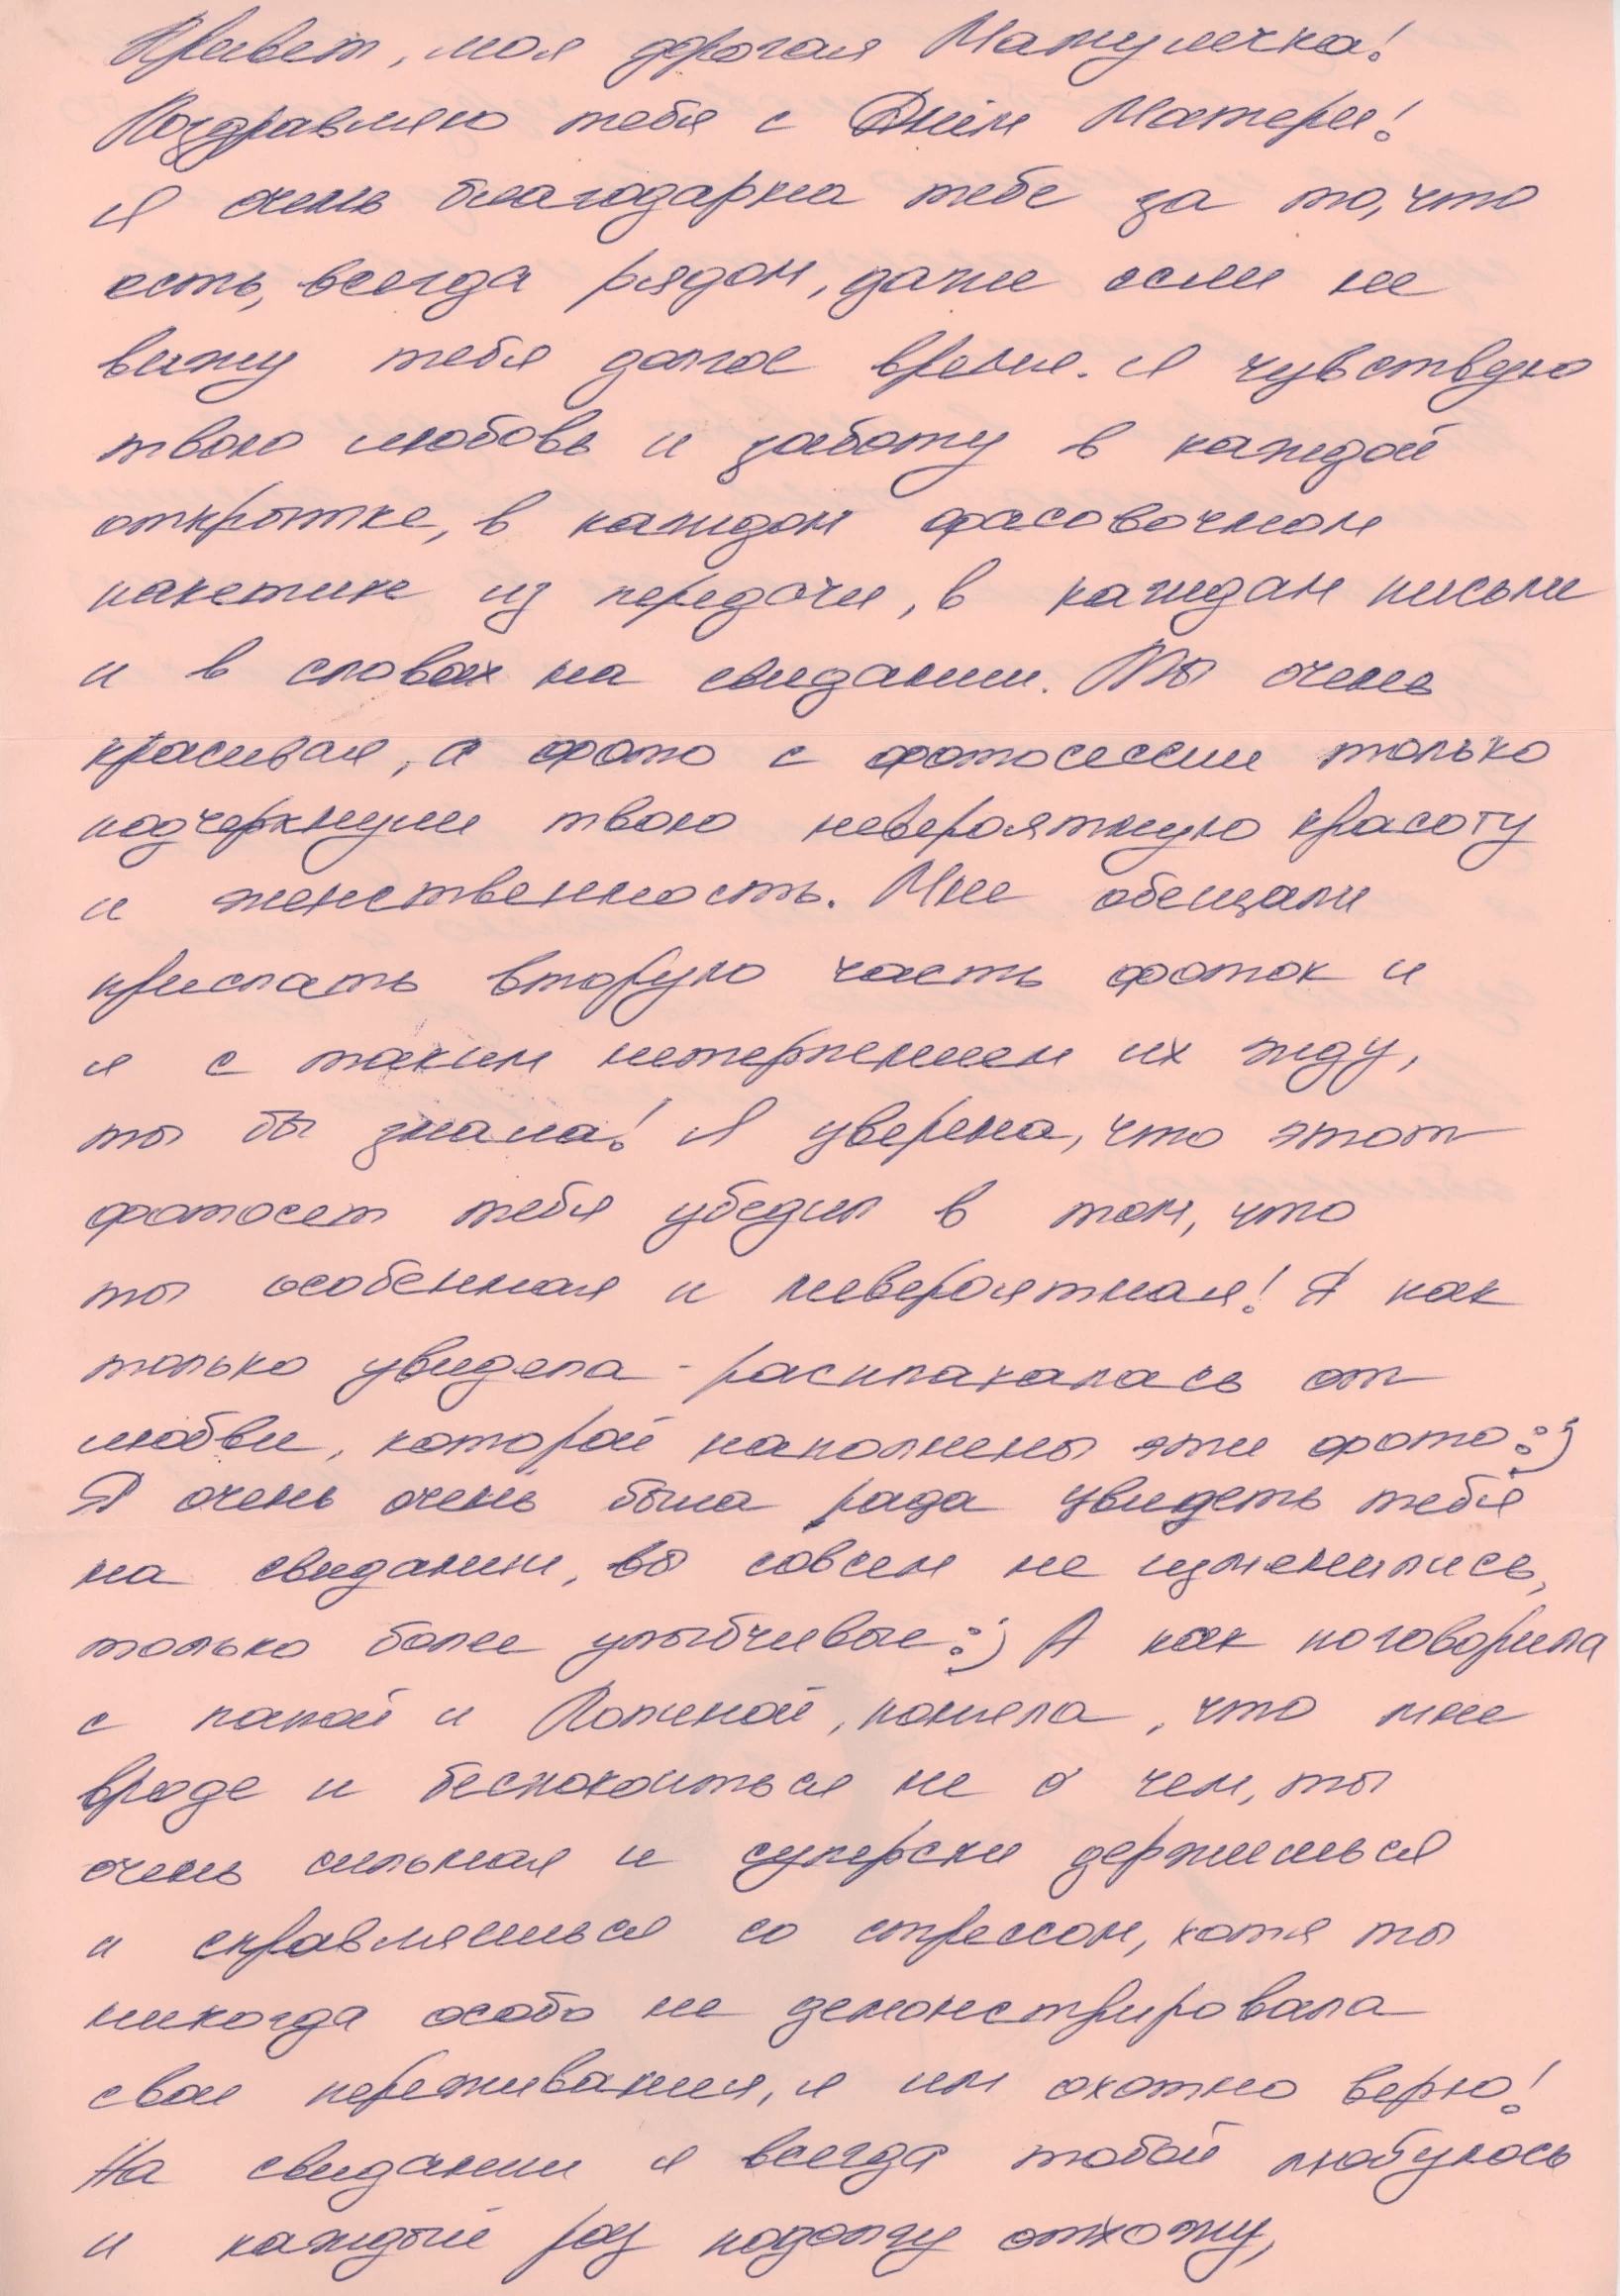 Привет, моя дорогая Мамулечка!
Поздравляю тебя с Днём Матери!
Я очень благодарна тебе за то, что
есть, всегда рядом, даже если не
вижу тебя долгое время. Я чувствую
твою любовь и заботу в каждой
открытке, в каждом фасовочном
пакетике из передачи, в каждом письме
и в словах на свидании. Ты очень
красивая, а фото с фотосессии только
подчеркнули твою невероятную красоту
и женственность. Мне обещали
прислать вторую часть фоток и
я с таким нетерпением их жду,
ты бы знала! Я уверена, что этот
фотосет тебя убедил в том, что
ты особенная и невероятная! Я как
только увидела - расплакалась от
любви, которой наполнены эти фото :)
Я очень очень была рада увидеть тебя
на свидании, вы совсем не изменились,
только более улыбчивые :) А как поговорила
с папой и поняла, что мне
вроде и беспокоиться не о чем, ты
очень сильная и суперски держишься
и справляешься со стрессом, хотя ты
никогда особо не демонстрировала
свои переживания, я им охотно верю!
На свидании я всегда тобой любуюсь
и каждый раз подолгу отхожу,